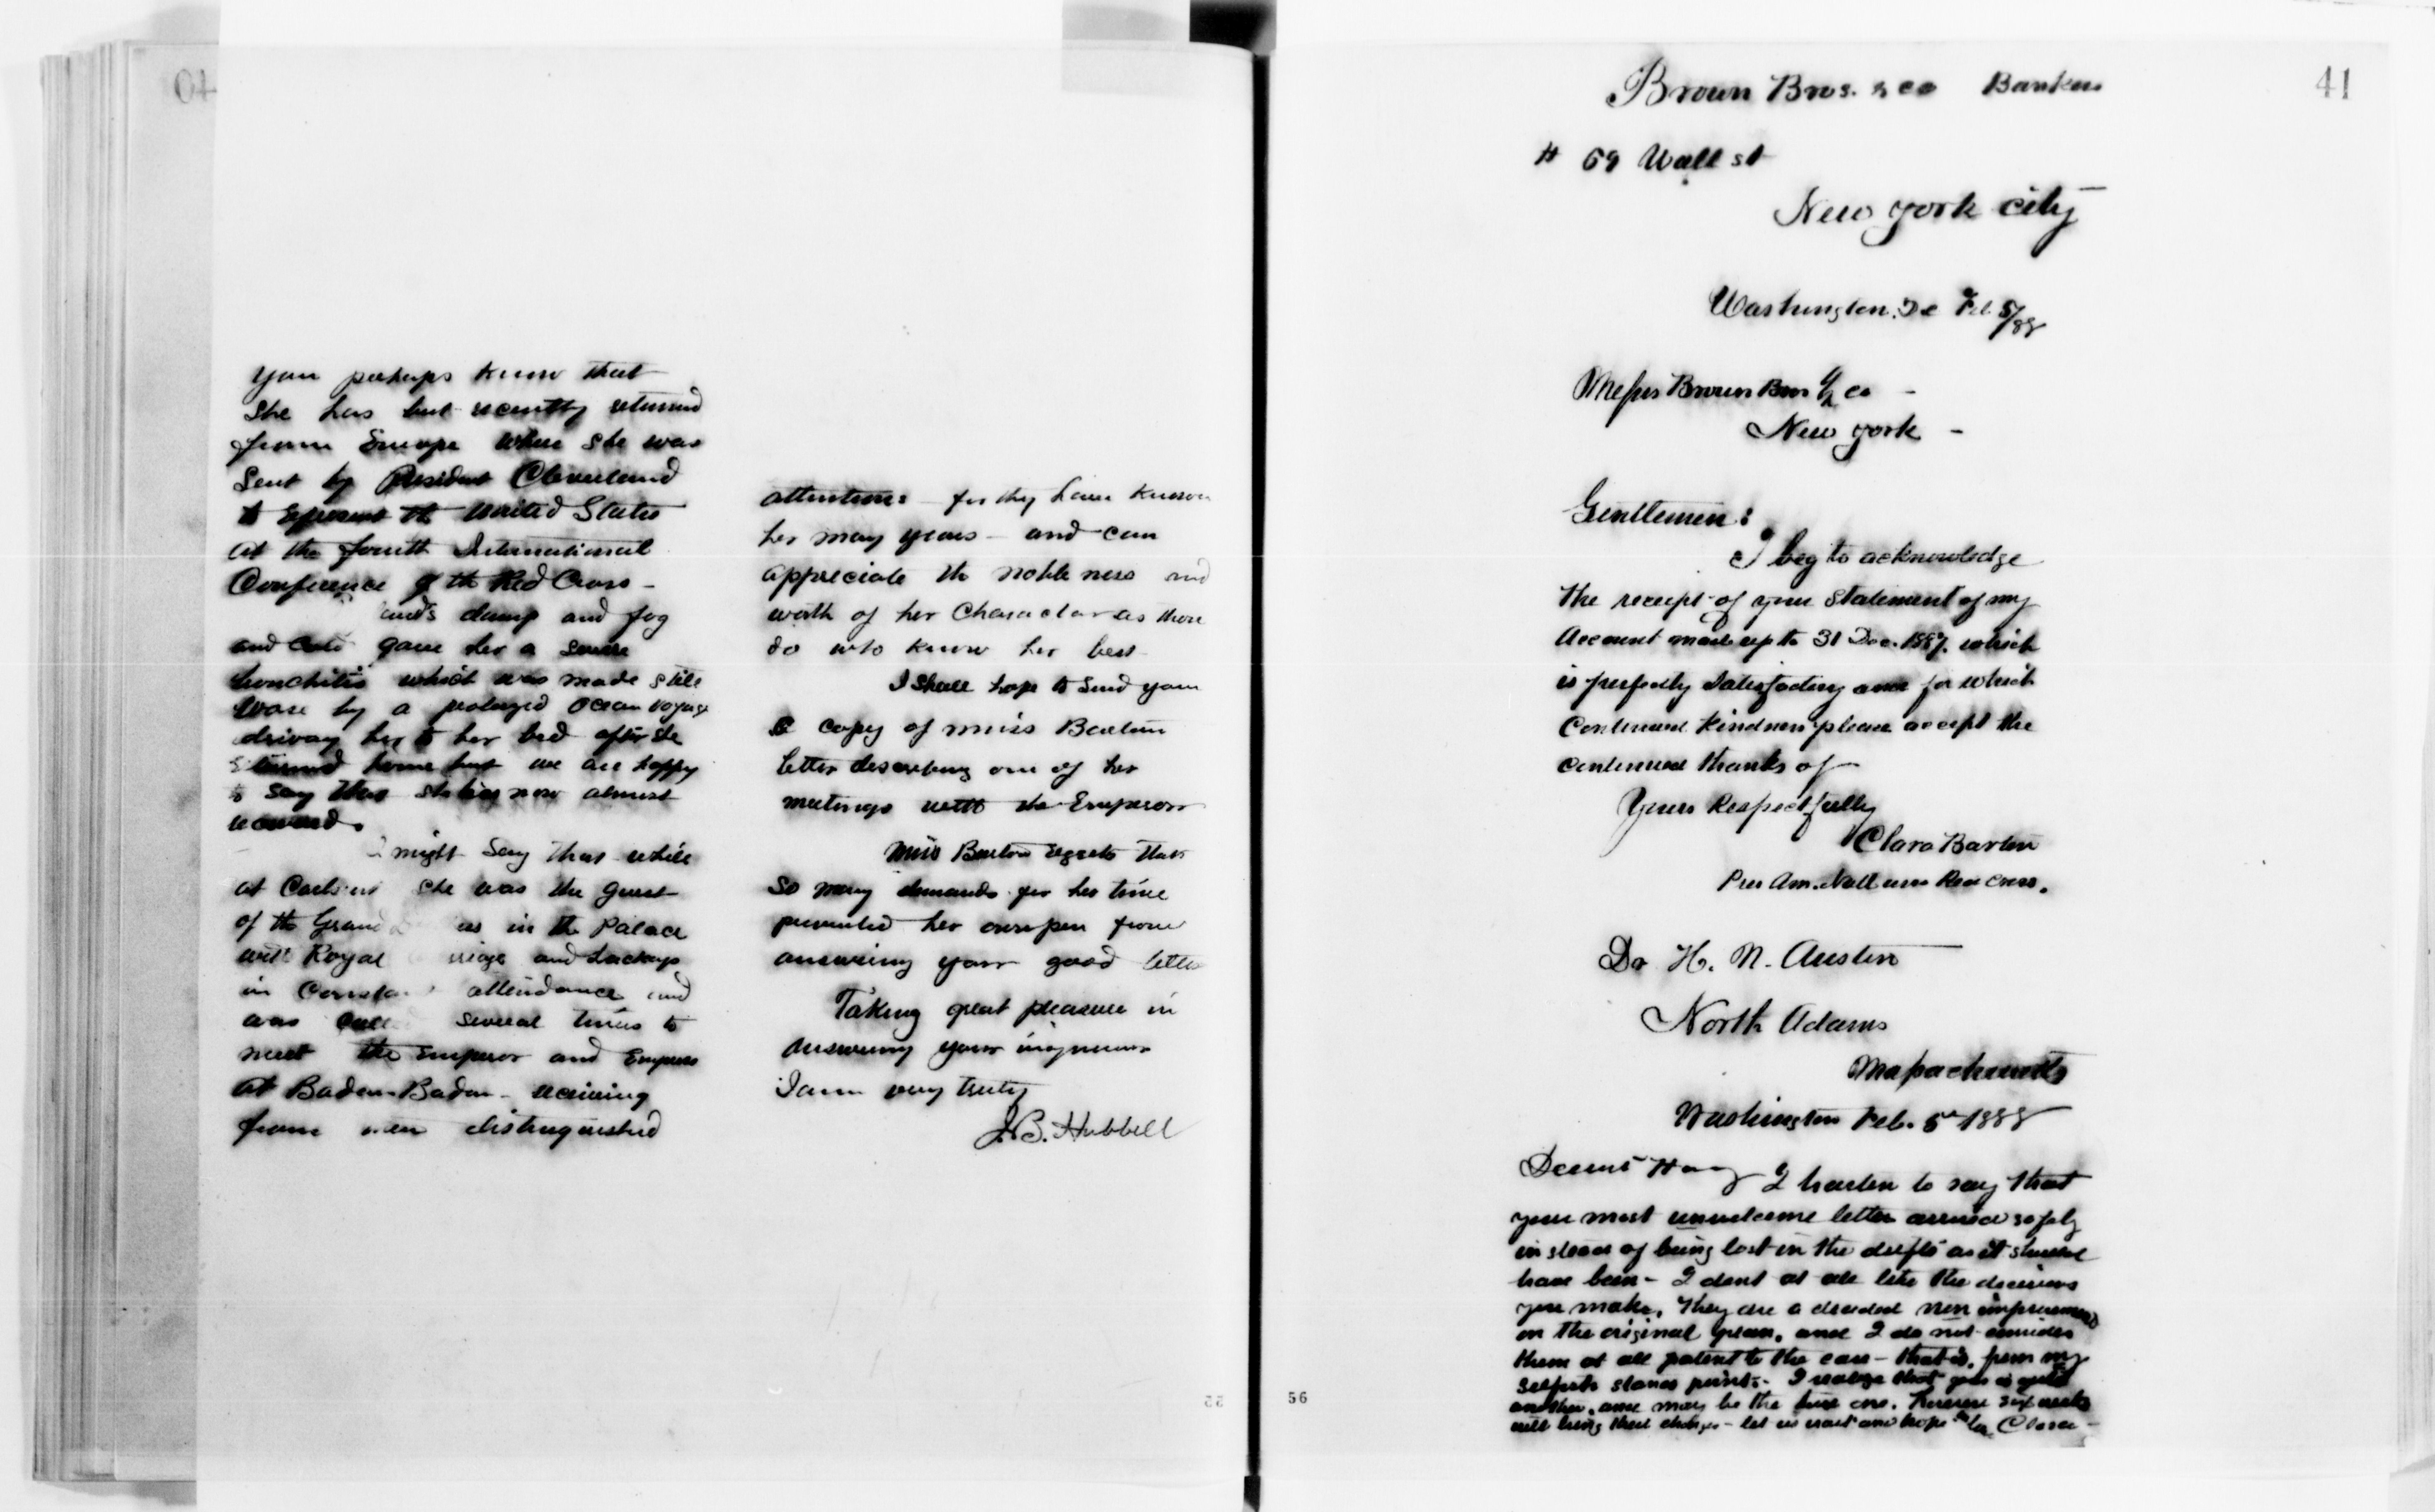 40
you perhaps know that
she has but recently returned
from Europe where she was
sent by President Cleveland
to represent the United States
at the fourth International
Conference of the Red Cross -
damp and fog
and cold gave her a severe
bronchitis which was made still
worse by a prolonged ocean voyage
driving her to her bed after she
returned home but we are happy
to say that she is now almost
recovered.
I might say that while
at she was the guest
of the Grand in the Palace
with Royal and Lackeys
in attendance and
was several times to
meet the Emperor and Empress
at Baden-Baden - receiving
from distinguished
attentions - for they have known
her many years - and can
appreciate the nobleness and
worth of her Character as those
do who know her best
I shall hope to send you
a copy of miss Barton
letter describing one of her
meetings with the Emperor
Miss Barton regrets that
so many demands for her time
prevented her own pen from
answering your good letter
Taking great pleasure in
answering your
I am very truly
J.B. Hubbell
55
41
Brown Bros. & co Bankers
# 59 Wall st
New york city
Washington. Dc Feb 5/88
Messrs Brown Bros & co -
New york -
Gentlemen:
I beg to acknowledge
the receipt of your statement of my
Account made up to 31 Dec. 1887. which
is perfectly satisfactory and for which
Continued kindness please accept the
continued thanks of
Yours Respectfully
Clara Barton
Pres Am. Natl Red Cross.
Dr H. N. Austin
North Adams
Massachusetts
Washington Feb. 5th 1888
I hasten to say that
your most unwelcome letter arrived safely
in stead of being lost in the drifts as it should
have been - I dont at all like the decisions
you make. They are a decided non improvement
on the original plan. and I do not consider
them at all patent to the case - that is, from my
selfish stand point. I realize that yours is quite
another. and may be the true one. However six weeks
will bring their changes - let us wait and hope. Clara -
56